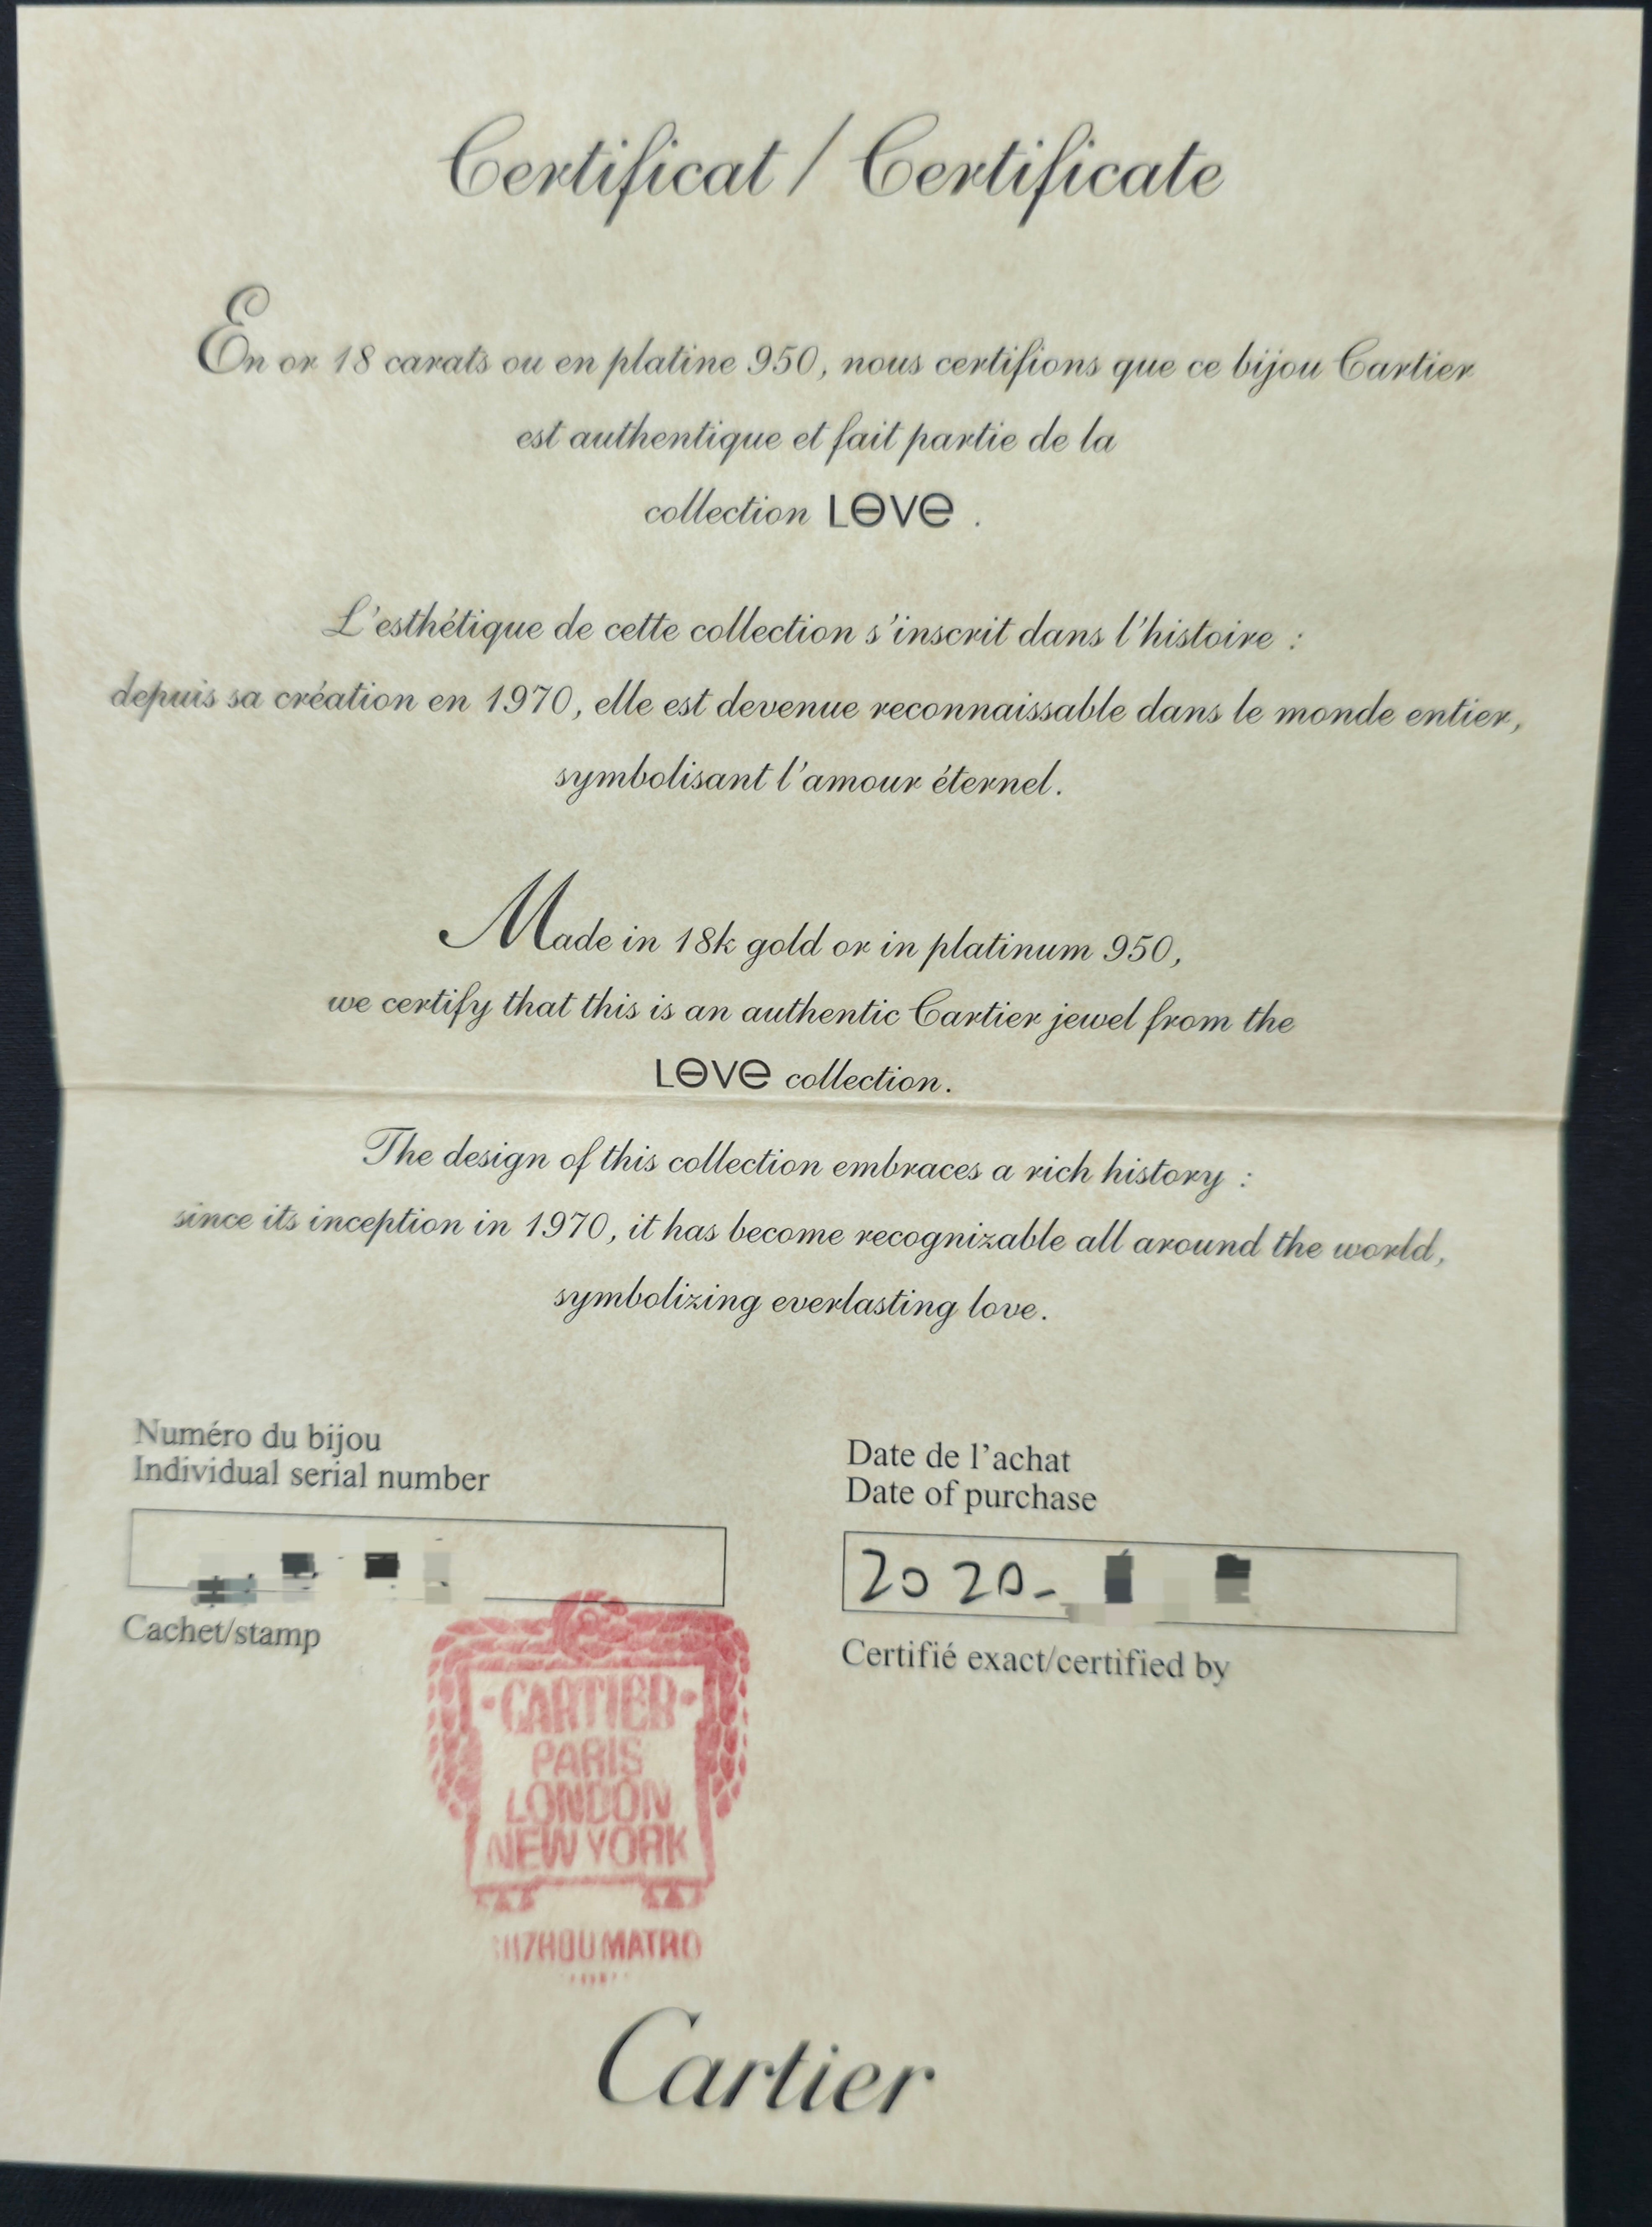 Certificat / Certificate
En or 18 carats ou en platine 950, nous certifions que ce bijou Cartier
est authentique et fait partie de la
collection LOVE .
L'esthétique de cette collection s'inscrit dans l'histoire :
depuis sa création en 1970, elle est devenue reconnaissable dans le monde entier,
symbolisant l'amour éternel.
Made in 18k gold or in platinum 950,
we certify that this is an authentic Cartier jewel from the
LOVE collection.
The design of this collection embraces a rich history :
since its inception in 1970, it has become recognizable all around the world,
symbolizing everlasting love.
Numéro du bijou
Individual serial number
Date de l'achat
Date of purchase
2020-
Cachet/stamp
Certifié exact/certified by
·CARTIER·
PARIS
LONDON
NEW YORK
MATRO
Cartier